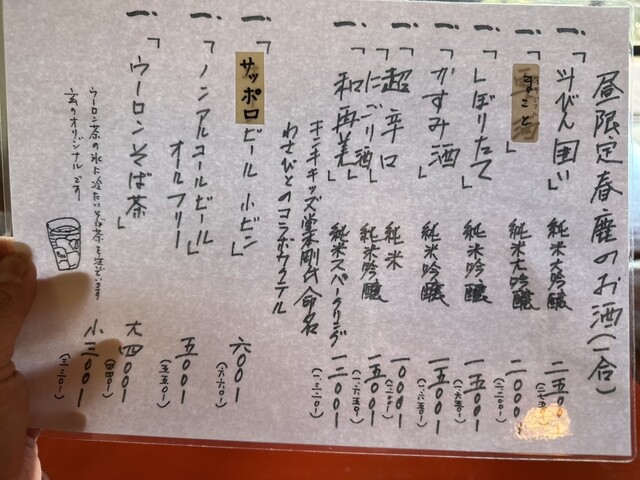 昼限定春鹿のお酒(一合)
一、「斗びん囲い」 純米大吟醸 二五〇〇
一、「まこと」 純米大吟醸 二〇〇〇 (二二〇〇-)
一、「しぼりたて」 純米吟醸 一五〇〇- (一、六五〇-)
一、「かすみ酒」 純米吟醸 一五〇〇- (一、六五〇-)
一、「超辛口」 純米 一〇〇〇-
一、「にごり酒」 純米吟醸 一五〇〇- (一、六五〇-)
一、「和再美」 純米スパークリング 一二〇〇- (一、三二〇-)
キンキキッズ堂本剛氏命名
わさびとのコラボカクテル
一、「サッポロビール小ビン」 六〇〇- (六六〇-)
一、「ノンアルコールビール」 五〇〇- (五五〇-)
オールフリー
一、「ウーロンそば茶」 大四〇〇- (四四〇-)
小三〇〇- (三三〇-)
ウーロン茶の氷に冷たいそば茶を注ぎます
玄のオリジナルです